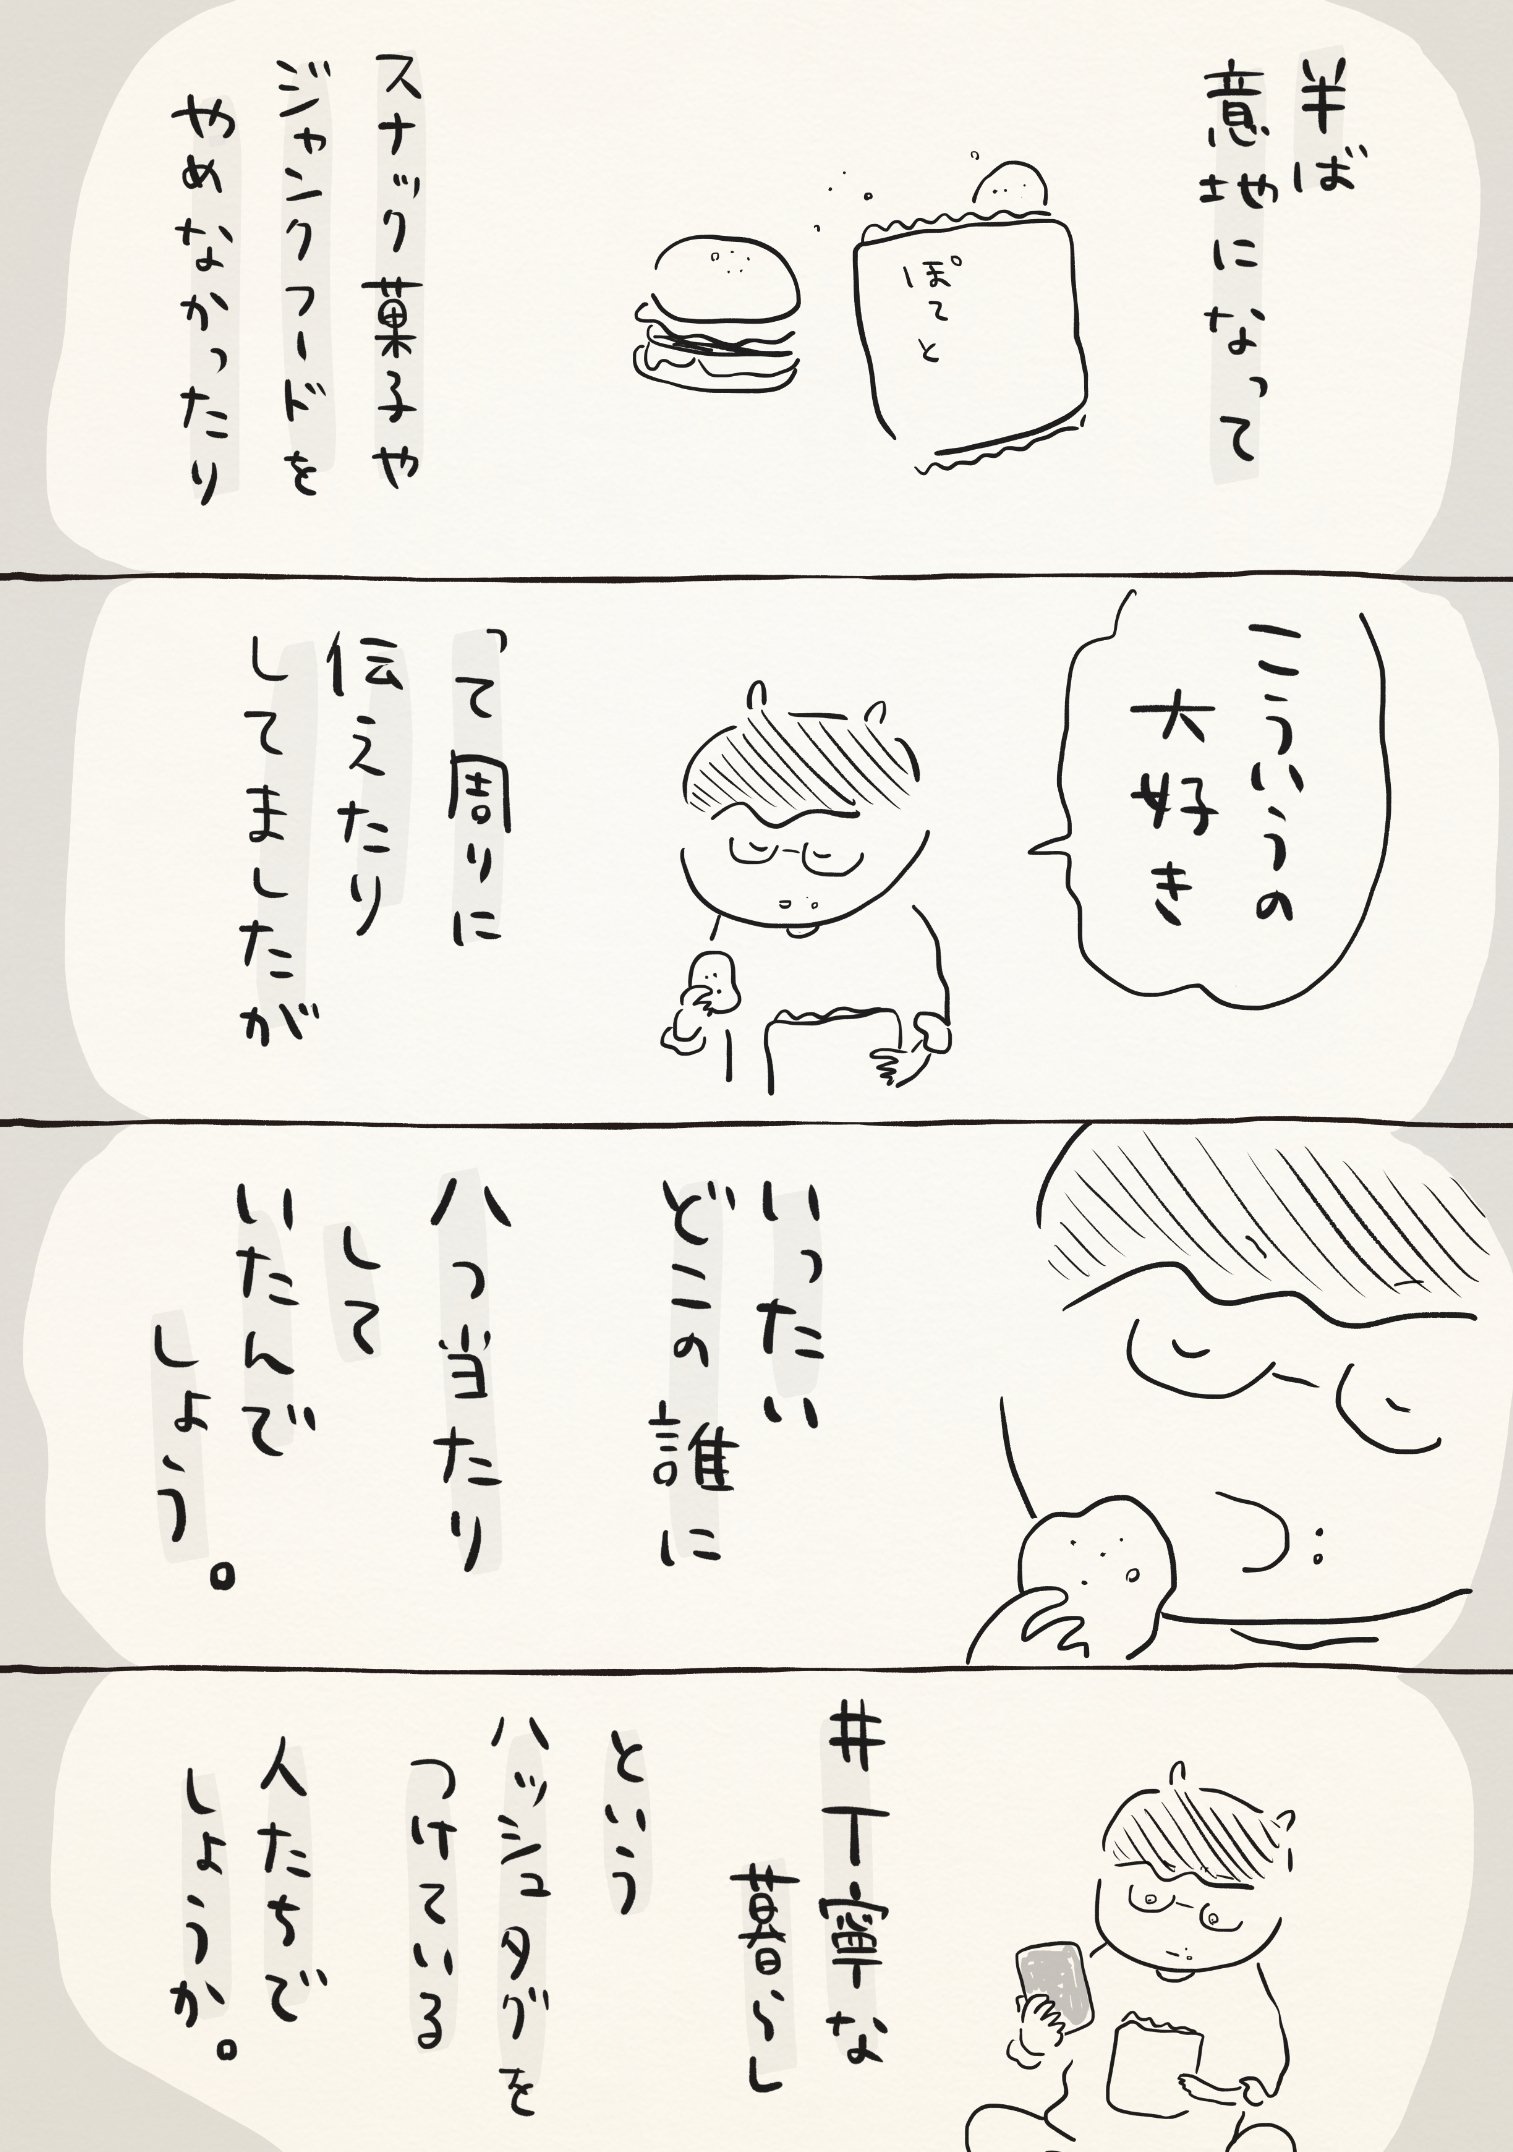 半ば
意地になって
ぽてと
スナック菓子や
ジャンクフードを
やめなかったり
こういうの
大好き
って周りに
伝えたり
してましたが
いったい
どこの誰に
八つ当たり
して
いたんで
しょう。
#丁寧な
暮らし
という
ハッシュタグを
つけている
人たちで
しょうか。